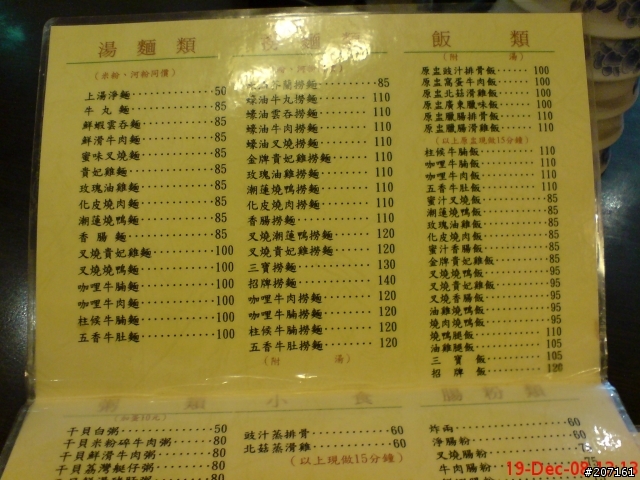 湯麵類
(米粉、河粉同價)
上湯淨麵 50
牛丸麵 85
鮮蝦雲吞麵 85
鮮滑牛肉麵 85
蜜味叉燒麵 85
貴妃雞麵 85
玫瑰油雞麵 85
化皮燒肉麵 85
潮蓮燒鴨麵 85
香腸麵 85
叉燒貴妃雞麵 100
叉燒燒鴨麵 100
咖哩牛腩麵 100
咖哩牛肉麵 100
柱候牛腩麵 100
五香牛肚麵 100
撈麵類
芥蘭撈麵 85
蠔油牛丸撈麵 110
蠔油雲吞撈麵 110
蠔油牛肉撈麵 110
蠔油叉燒撈麵 110
金牌貴妃雞撈麵 110
玫瑰油雞撈麵 110
潮蓮燒鴨撈麵 110
化皮燒肉撈麵 110
香腸撈麵 110
叉燒潮蓮鴨撈麵 120
叉燒貴妃雞撈麵 120
三寶撈麵 130
招牌撈麵 140
咖哩牛肉撈麵 120
咖哩牛腩撈麵 120
柱候牛腩撈麵 120
五香牛肚撈麵 120
(附湯)
飯類
(附湯)
原盅豉汁排骨飯 100
原盅窩蛋牛肉飯 100
原盅北菇滑雞飯 100
原盅廣東臘味飯 100
原盅臘腸排骨飯 110
原盅臘腸滑雞飯 110
(以上原盅現做15分鐘)
柱候牛腩飯 110
咖哩牛腩飯 110
咖哩牛肉飯 110
五香牛肚飯 110
蜜汁叉燒飯 85
潮蓮燒鴨飯 85
玫瑰油雞飯 85
化皮燒肉飯 85
蜜汁香腸飯 85
金牌貴妃雞飯 85
叉燒燒鴨飯 95
叉燒燒肉飯 95
叉燒香腸飯 95
油雞燒鴨飯 95
燒肉燒鴨飯 95
燒鴨腿飯 110
油雞腿飯 105
三寶飯 105
招牌飯 120
粥類
(加蛋10元)
干貝白粥 50
干貝米粉碎牛肉粥 80
干貝鮮滑牛肉粥 80
干貝荔灣艇仔粥 80
小食
豉汁蒸排骨 60
北菇蒸滑雞 60
(以上現做15分鐘)
腸粉類
炸兩 60
淨腸粉 60
叉燒腸粉 75
牛肉腸粉 75
19-Dec-08 13:13
#207161